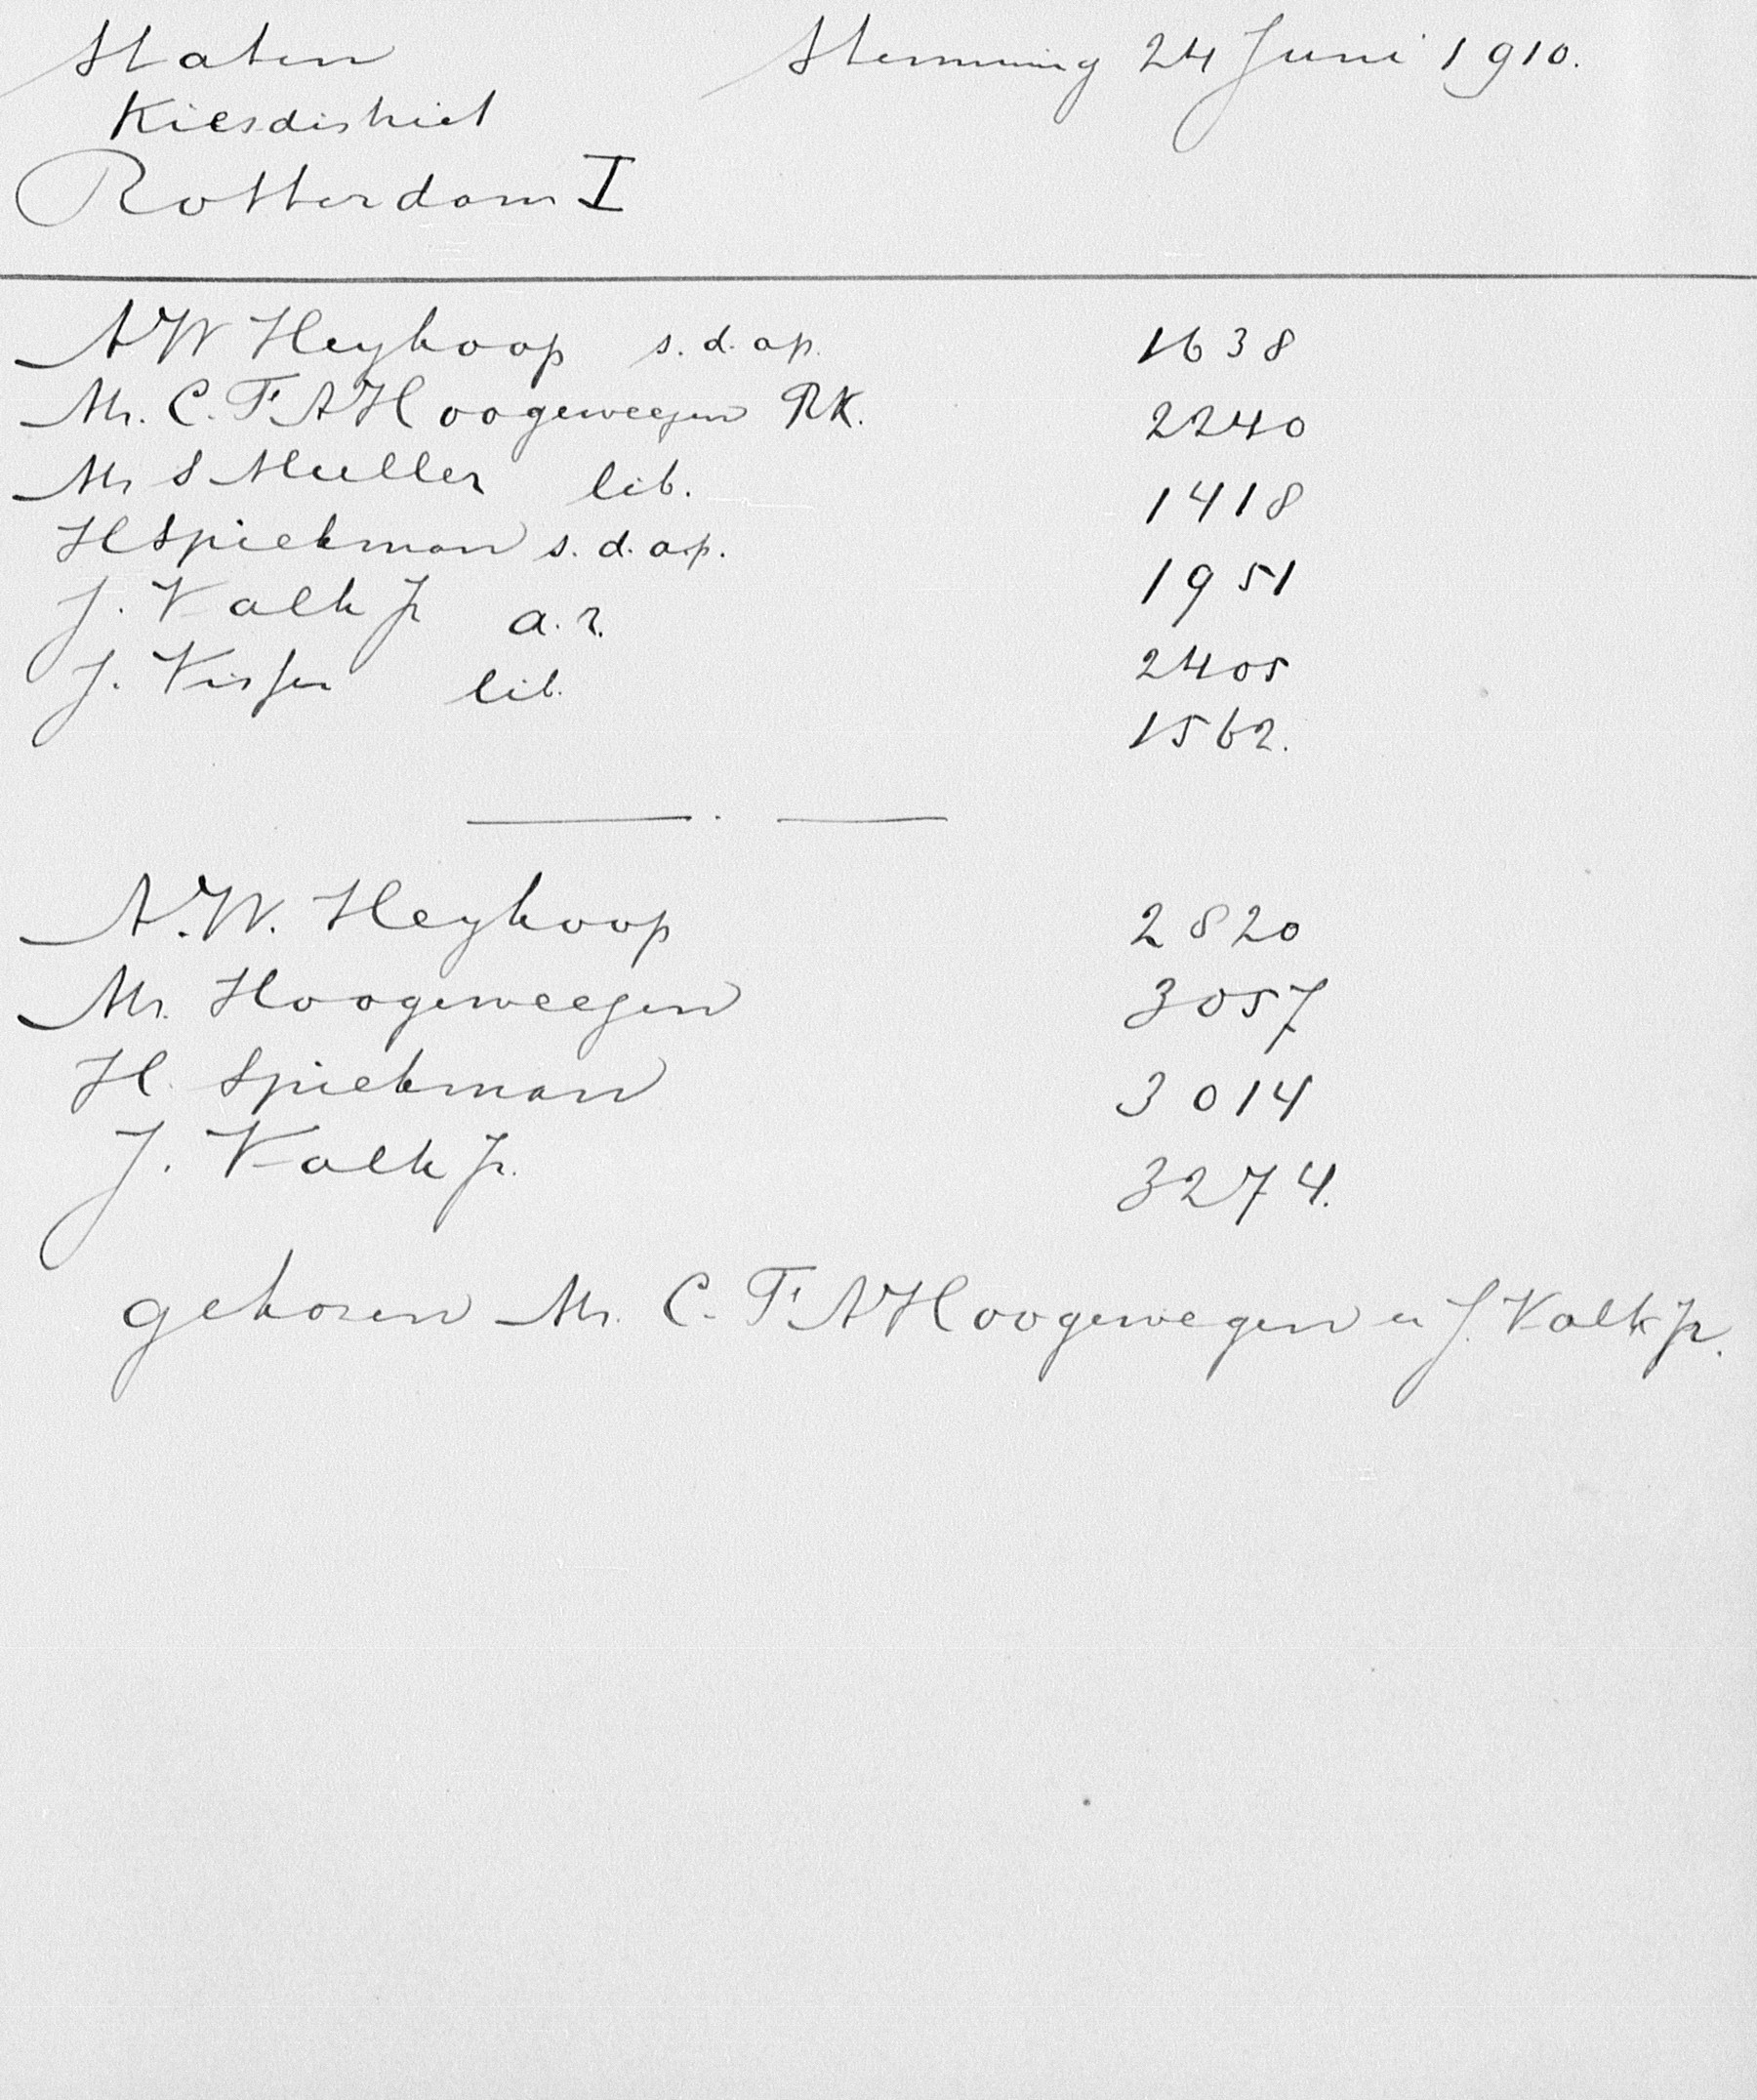 Staten Stemming 24 Juni 1910.
Kiesdistrict
Rotterdam I
A W Heykoop s.d.ap. 1638
Mr. C. F. A Hoogeweegen RK. 2240
Mr S Muller lib. 1418
H Spiekman s.d.ap. 1951
J. Valk Jr a.r. 2405
J. Visser lib. 1562.
A.W. Heykoop 2820
Mr. Hoogeweegen 3057
H. Spiekman 3014
J. Valk Jr. 3274.
gekozen Mr. C. F. A Hoogewegen en J. Valk Jr.